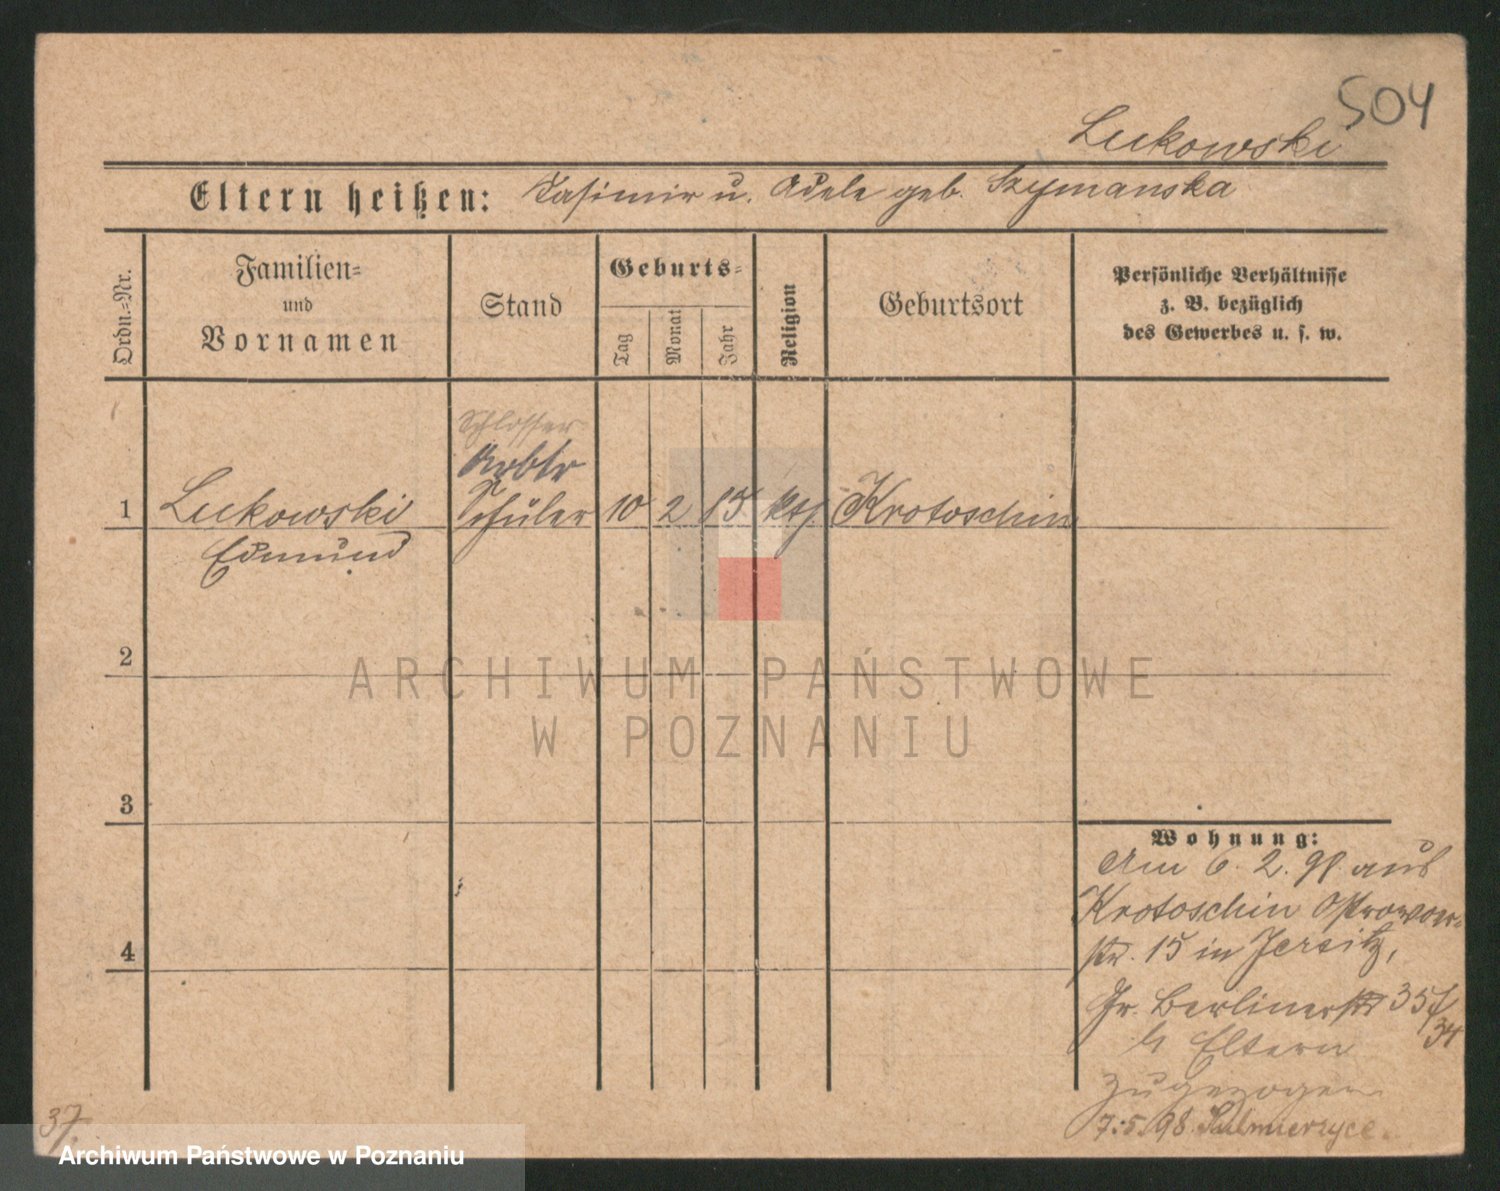 504
Lukowski
Eltern heißen: Kasimir u. Adele geb. Szymanska
Ordn.-Nr.
Familien-
und
Vornamen
Stand
Geburts-
Tag
Monat
Jahr
Religion
Geburtsort
Persönliche Verhältnisse
z. B. bezüglich
des Gewerbes u. s. w.
Schlosser
Arbtr
1 Lukowski Schüler 10 2 85 kth Krotoschin
Edmund
2
3
4
Wohnung:
Am 6. 2. 98 aus
Krotoschin Ostrowoer-
str. 15 in Jersitz,
Gr. Berlinerstr 35/
34
Eltern
zugezogen
7.5.98. Sulmierzyce.
37.
ARCHIWUM PAŃSTWOWE
W POZNANIU
Archiwum Państwowe w Poznaniu